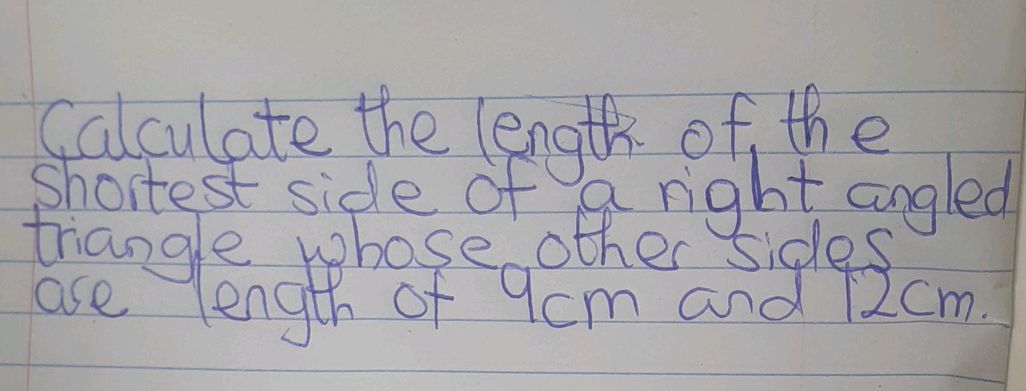 Calculate the length of the
shortest side of a right angled
triangle whose other sides
are length of 9cm and 12cm.